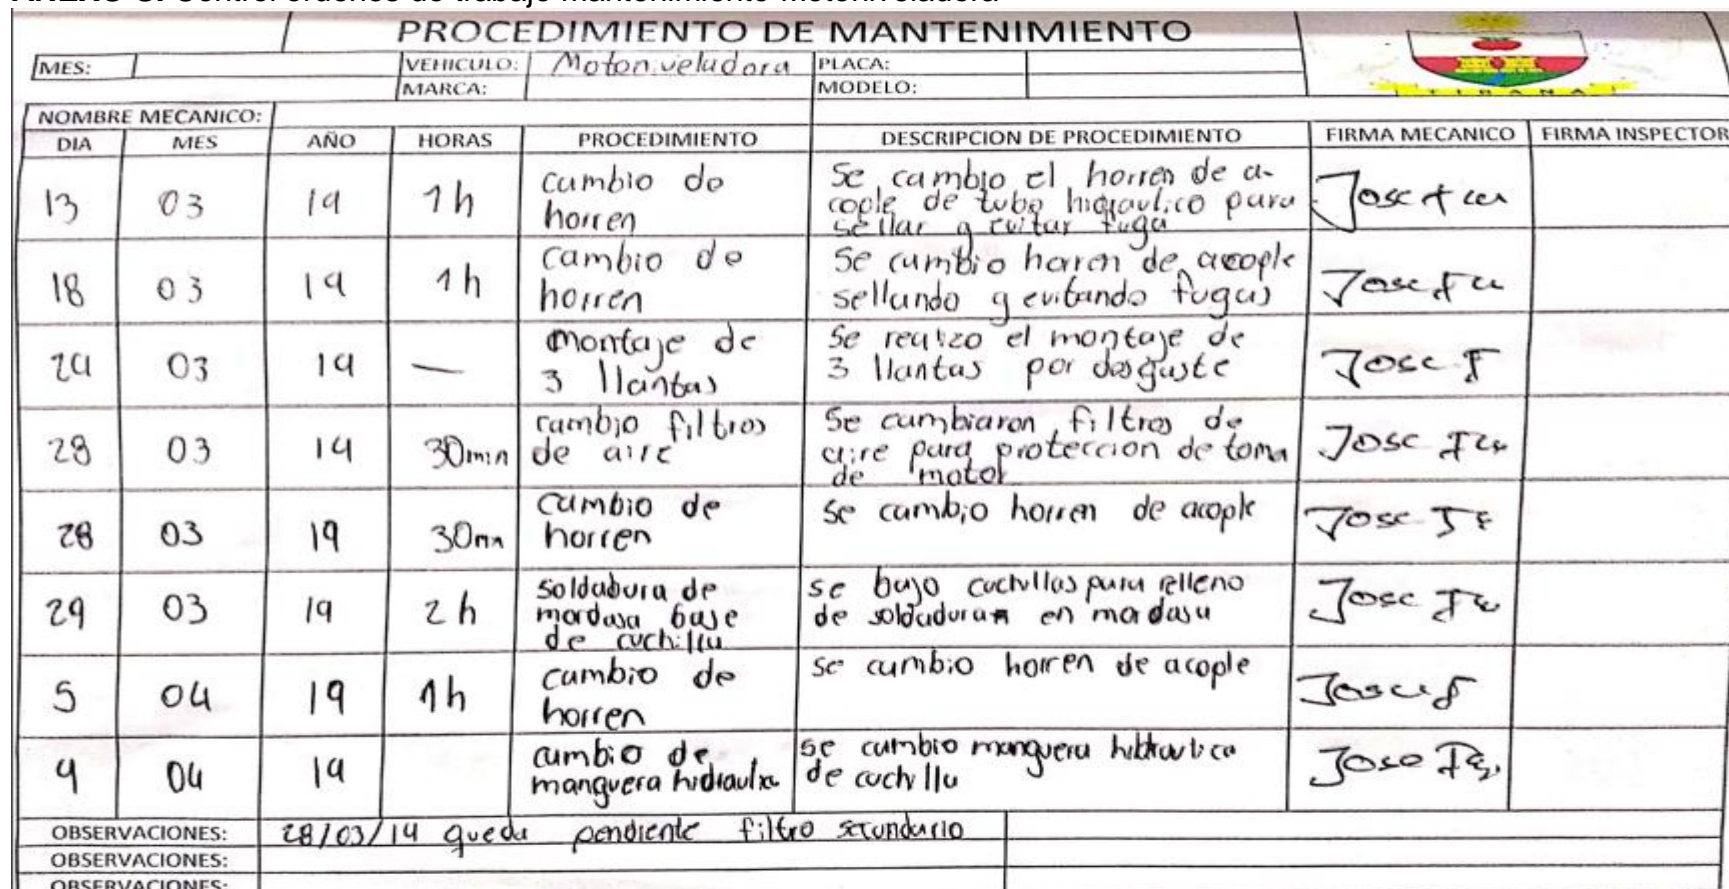 PROCEDIMIENTO DE MANTENIMIENTO
MES: VEHICULO: Motoniveladora PLACA:
MARCA: MODELO:
TIBANA
NOMBRE MECANICO:
DIA MES AÑO HORAS PROCEDIMIENTO DESCRIPCION DE PROCEDIMIENTO FIRMA MECANICO FIRMA INSPECTOR
13 03 19 1h cambio de horren Se cambio el horren de a-
cople de tubo hidraulico para
sellar y evitar fuga Jose
18 03 19 1h cambio de horren Se cambio horren de acople
sellando y evitando fugas Jose
03 19 — montaje de
3 llantas Se realizo el montaje de
3 llantas por desguste Jose
28 03 19 30min cambio filtros
de aire Se cambiaron filtros de
aire para proteccion de toma
de motor Jose
28 03 19 30mn cambio de
horren se cambio horren de acople Jose
29 03 19 2h soldadura de
mordasa base
de cuchilla se bajo cuchillas para relleno
de soldaduras en mordasa Jose
5 04 19 1h cambio de
horren se cambio horren de acople Jose
9 04 19 cambio de
manguera hidraulica se cambio manguera hidraulica
de cuchilla Jose
OBSERVACIONES: 28/03/19 queda pendiente filtro secundario
OBSERVACIONES:
OBSERVACIONES: